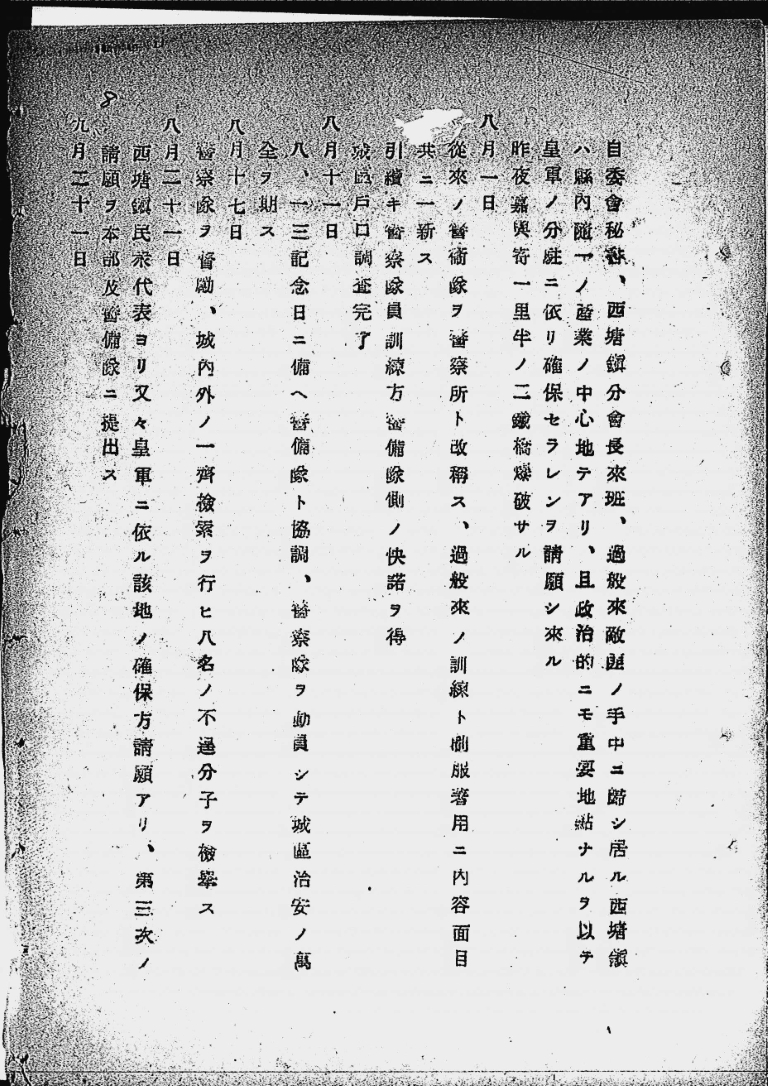 自委會秘書、西塘鎭分會長來班、過般來敵匪ノ手中ニ歸シ居ル西塘鎭
ハ縣內隨一ノ產業ノ中心地テアリ、且政治的ニモ重要地點ナルヲ以テ
皇軍ノ分駐ニ依リ確保セラレンヲ請願シ來ル
昨夜嘉興寄一里半ノ二鐵橋爆破サル
八月一日
從來ノ警衞隊ヲ警察所ト改稱ス、過般來ノ訓練ト制服著用ニ內容面目
共ニ一新ス
引續キ警察隊員訓練方警備隊側ノ快諾ヲ得
城區戶口調査完了
八月十一日
八、一三記念日ニ備ヘ警備隊ト協調、警察隊ヲ動員シテ城區治安ノ萬
全ヲ期ス
八月十七日
警察隊ヲ督勵、城內外ノ一齊檢索ヲ行ヒ八名ノ不逞分子ヲ檢擧ス
八月二十一日
西塘鎭民衆代表ヨリ又々皇軍ニ依ル該地ノ確保方請願アリ、第三次ノ
請願ヲ本部及警備隊ニ提出ス
八月二十一日
8